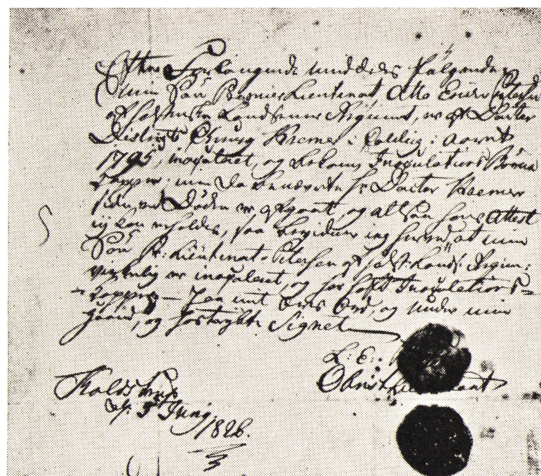 Efter Forlangende meddeles følgende:
Min Søn Premier Lieutenant Otto
af Holstenske Landsenair Regiment, er af Doctor
Districts Chirurg Kremer i Colding: Aaret
1795, inoculeret, og bekom Inoculations Børne
kopper; men da benævnte Hr Doctor Kremer
siden ved Døden er afgaaet, og altsaa hans Attest
ej kan erholdes, saa bevidner jeg herved, at min
Søn Pr: Lieutenant Petersen af Holst: Lands: Regim:
virkelig er inoculeret, og har havt Inoculations-
kopper – og under min
Haand, og hostrykte Signet
L: E:
Obrist Lieutenant
d: 3 Juny
1826.